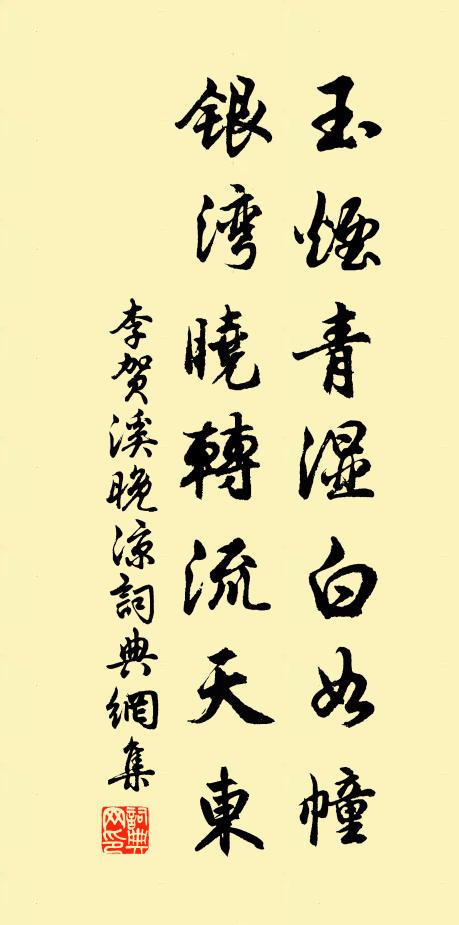 玉煙青湿白如幢
銀湾曉轉流天東
李賀溪晚涼詞典網集
詞典網印